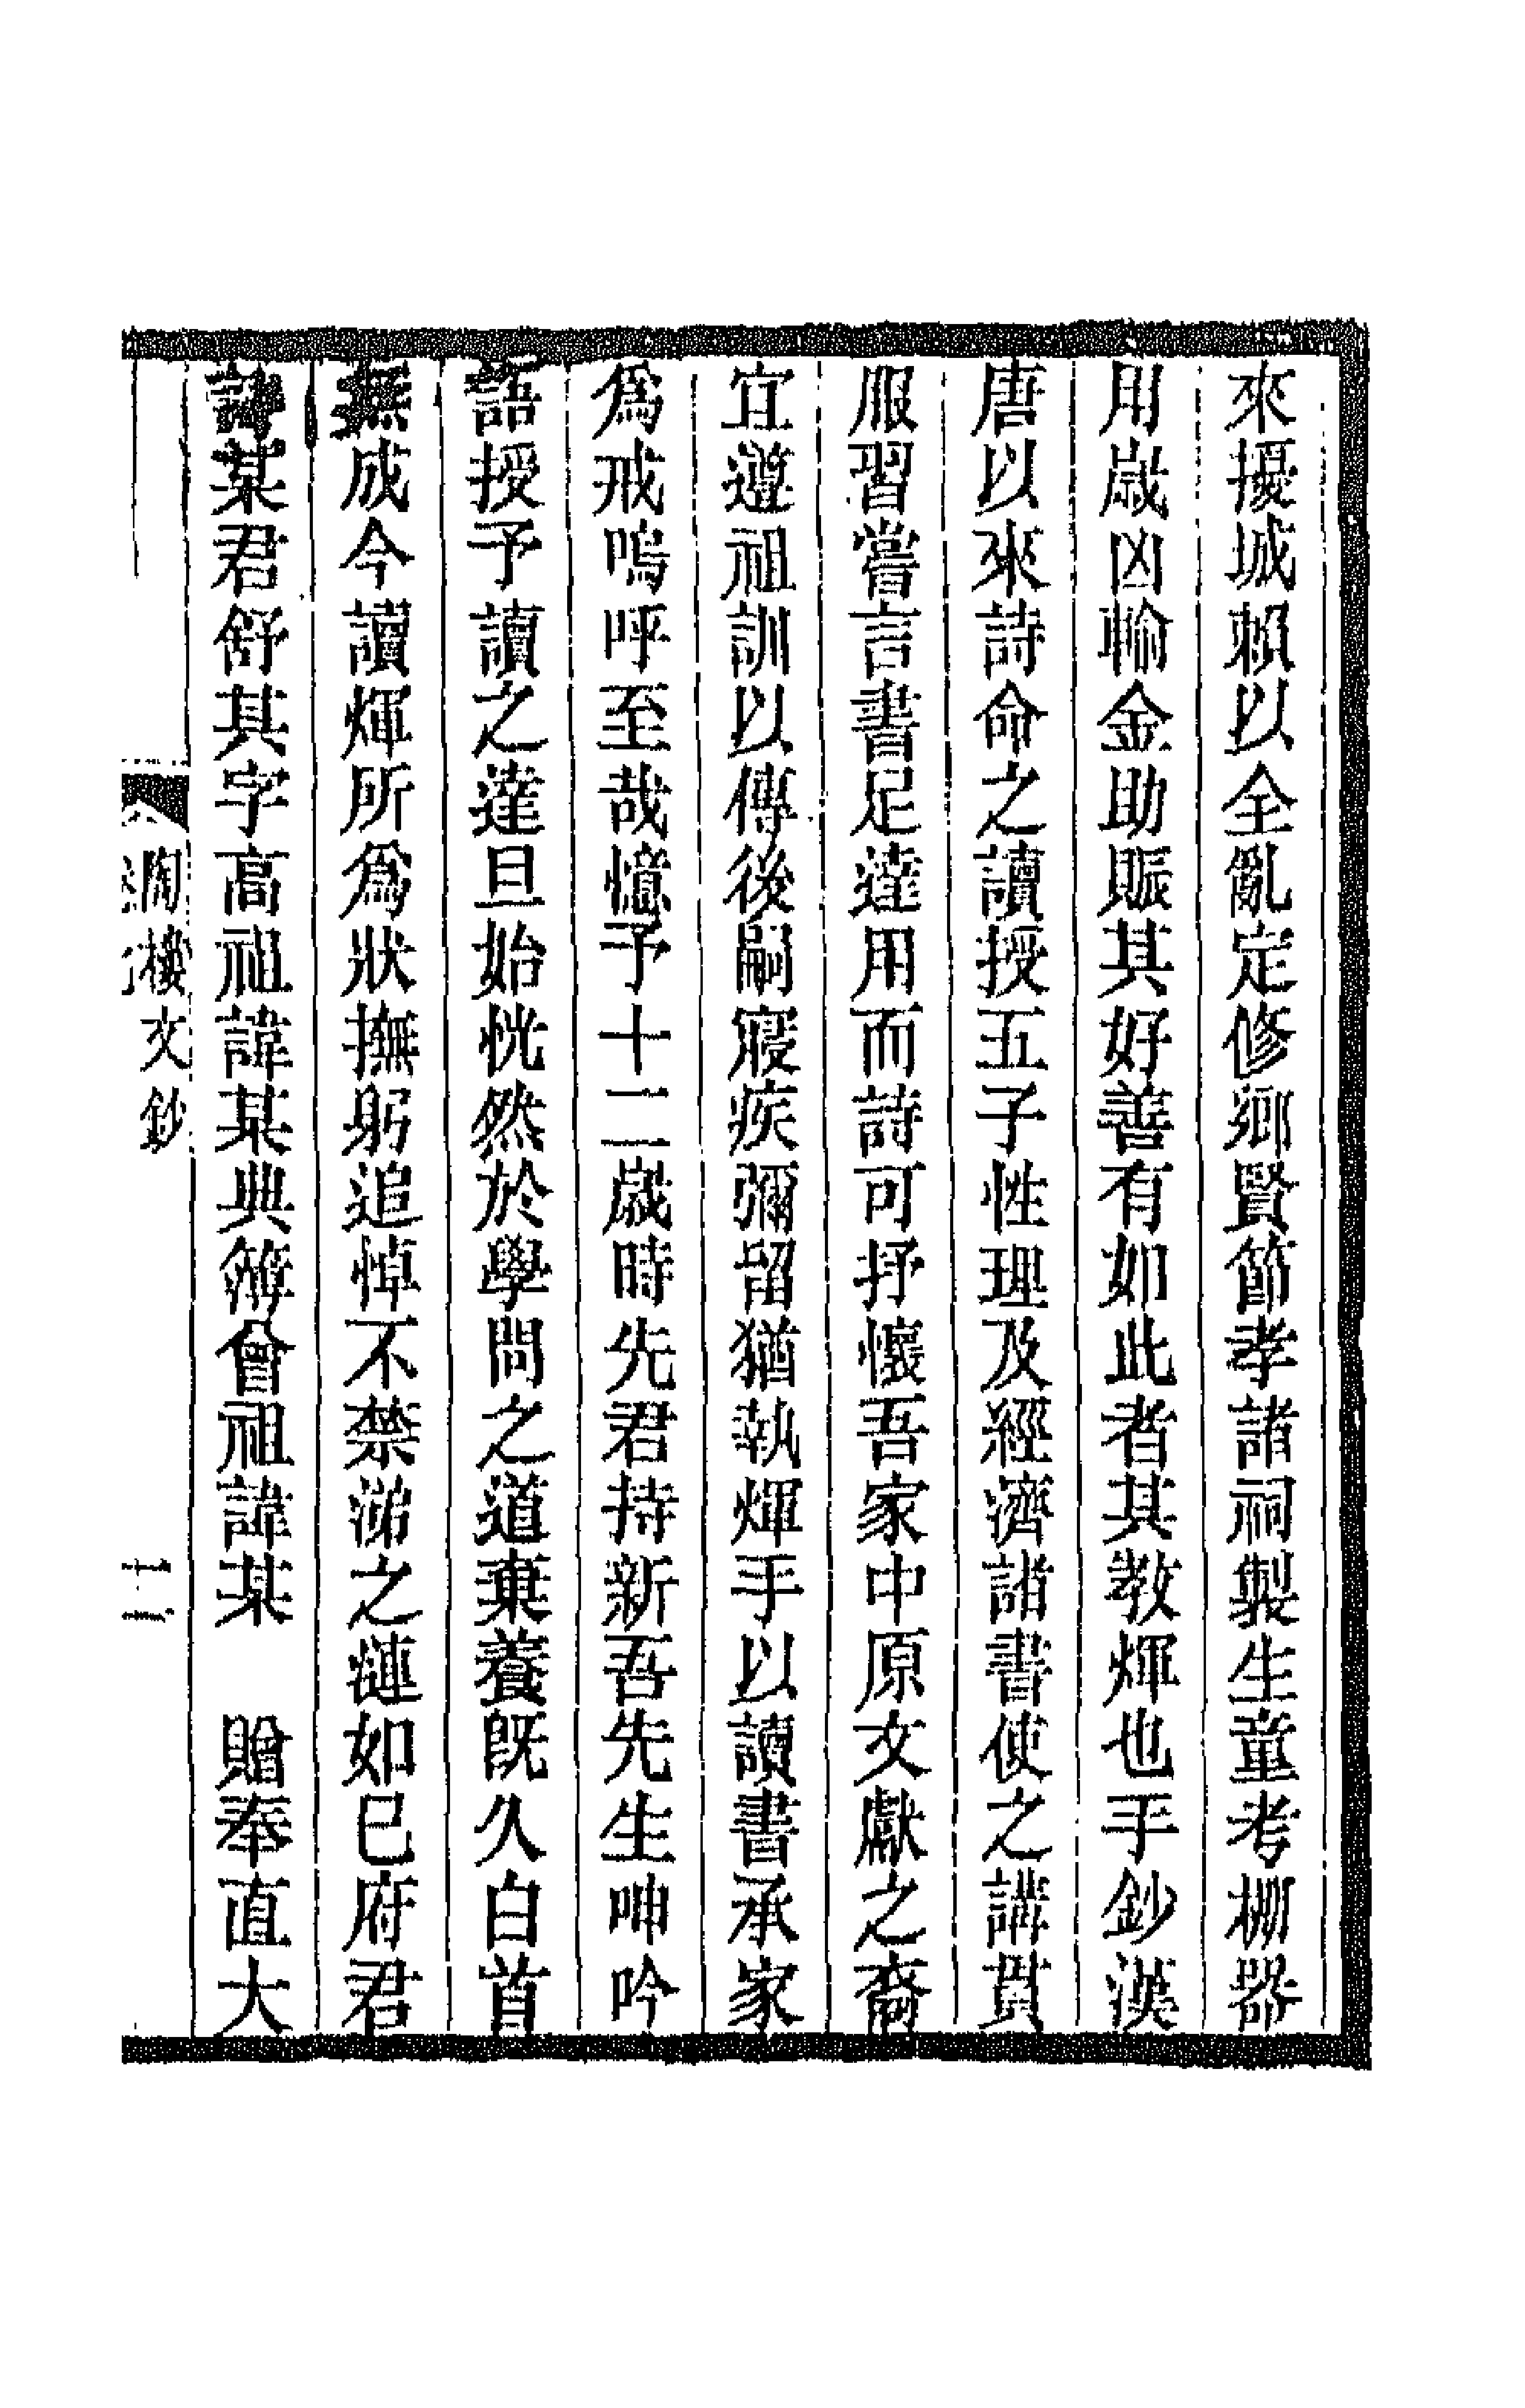 來擾城賴以全亂定修鄉賢節孝諸祠製生童考棚器
用歲凶輸金助賑其好善有如此者其教煇也手鈔漢
唐以來詩命之讀授五子性理及經濟諸書使之講貫
服習嘗言書足達用而詩可抒懷吾家中原文獻之裔
宜遵祖訓以傳後嗣寢疾彌留猶執煇手以讀書承家
爲戒嗚呼至哉憶予十二歲時先君持新吾先生呻吟
語授予讀之達旦始恍然於學問之道棄養旣久白首
無成今讀煇所爲狀撫躬追悼不禁涕之漣如巳府君
諱某君舒其字高祖諱某典簿曾祖諱某　贈奉直大
陶樓文鈔
十一